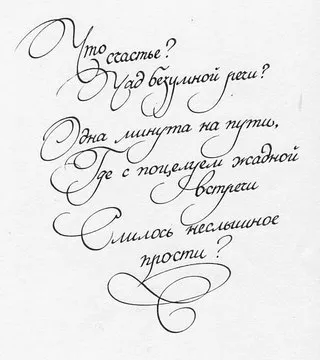 Что счастье?
Чад безумной речи?
Одна минута на пути,
Где с поцелуем жадной
встречи
Слилось неслышное
прости?